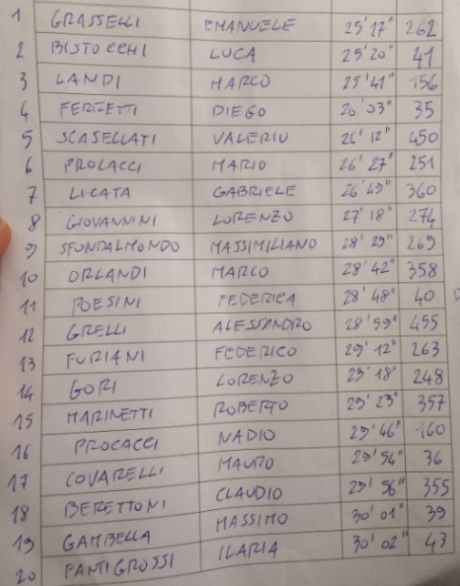 1 GRASSELLI EMANUELE 25'17" 262
2 BISTOCCHI LUCA 25'20" 41
3 LANDI MARCO 25'41" 156
4 FERZETTI DIEGO 26'03" 35
5 SCASELLATI VALERIO 26'12" 450
6 PROCACCI MARIO 26'27" 251
7 LICATA GABRIELE 26'49" 360
8 GIOVANNINI LORENZO 27'18" 274
9 SFONDALMONDO MASSIMILIANO 28'29" 269
10 ORLANDI MARCO 28'42" 358
11 POESINI FEDERICA 28'48" 40
12 GRELLI ALESSANDRO 28'59" 455
13 FURIANI FEDERICO 29'12" 263
14 GORI LORENZO 29'18" 248
15 MARINETTI ROBERTO 29'23" 357
16 PROCACCI NADIO 29'46" 160
17 COVARELLI MAURO 29'54" 36
18 BERETTONI CLAUDIO 29'56" 355
19 GAMBELLA MASSIMO 30'01" 39
20 FANTIGROSSI ILARIA 30'02" 43